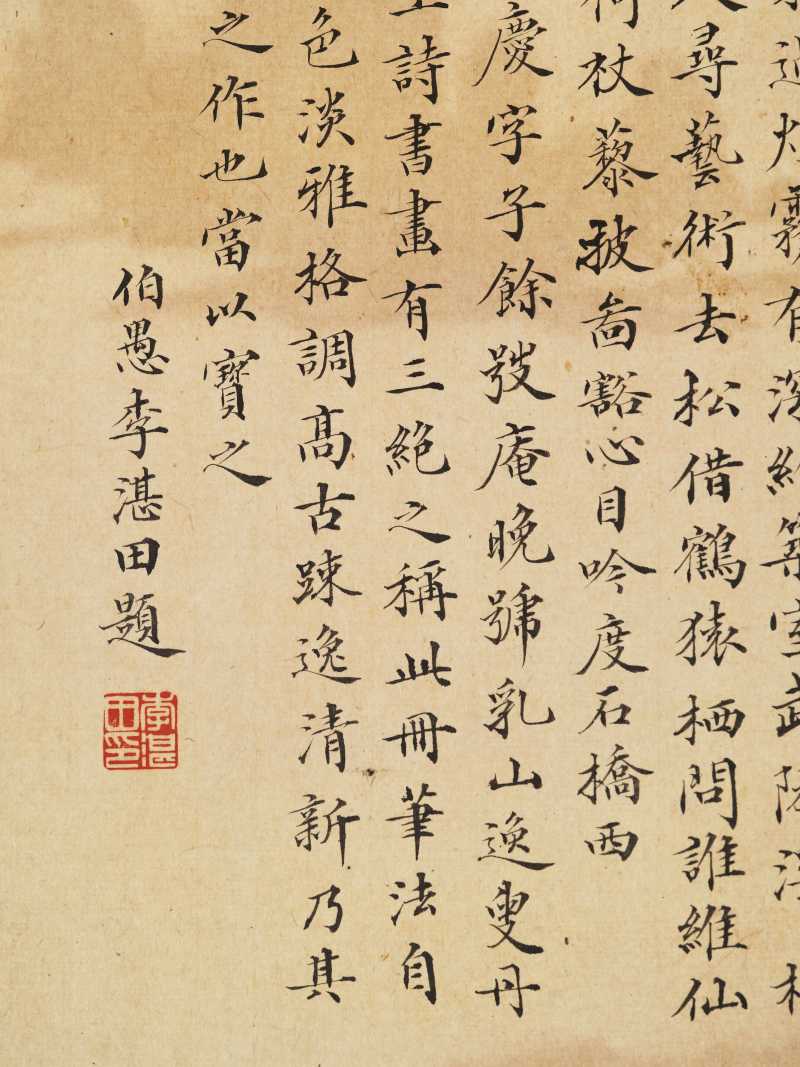 霧有深室武陵
尋藝術去松借鶴猿栖問誰維仙
杖藜披啚豁心目吟度石橋西
慶字子餘庵晚號乳山逸叟丹
詩書畫有三絕之稱此冊筆法自
色淡雅格調髙古踈逸清新乃其
之作也當以寶之
伯愚李湛田題
李湛田印